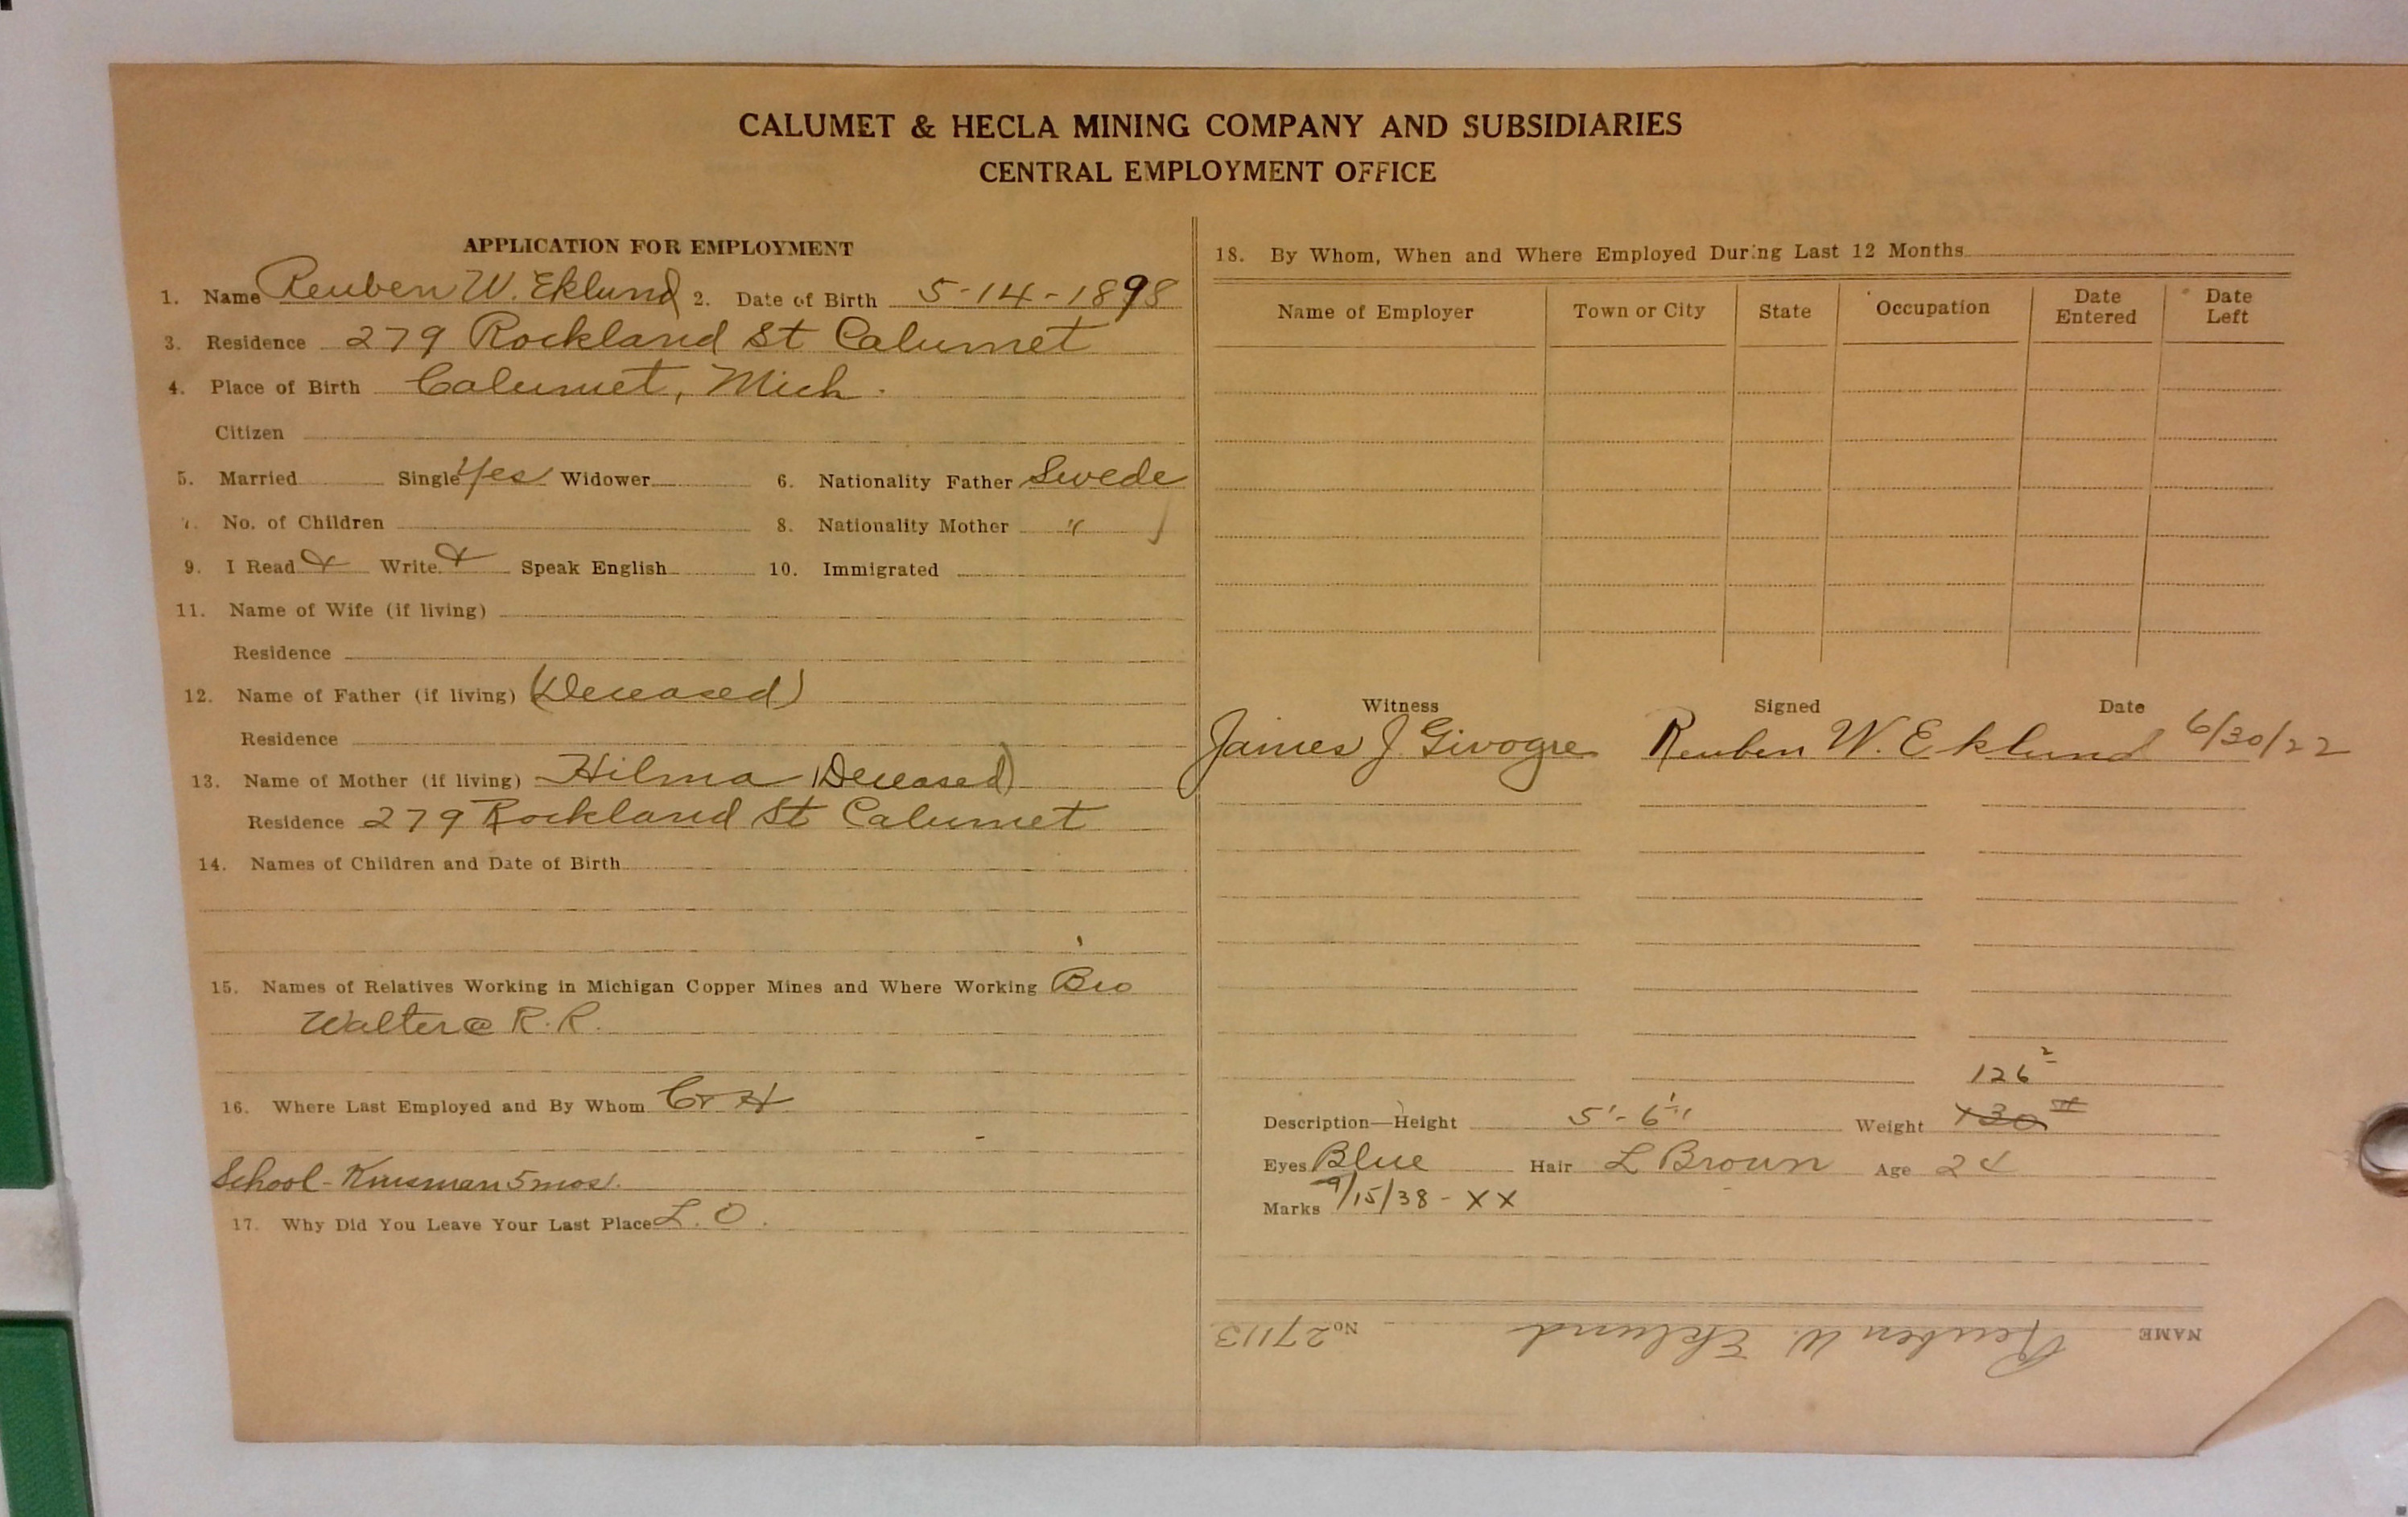 CALUMET & HECLA MINING COMPANY AND SUBSIDIARIES
CENTRAL EMPLOYMENT OFFICE
APPLICATION FOR EMPLOYMENT
1. Name Reuben W. Eklund 2. Date of Birth 5-14-1898
3. Residence 279 Rockland St Calumet
4. Place of Birth Calumet, Mich.
Citizen
5. Married Single Yes Widower 6. Nationality Father Swede
7. No. of Children 8. Nationality Mother "
9. I Read & Write & Speak English 10. Immigrated
11. Name of Wife (if living)
Residence
12. Name of Father (if living) (Deceased)
Residence
13. Name of Mother (if living) Hilma (Deceased)
Residence 279 Rockland St Calumet
14. Names of Children and Date of Birth
15. Names of Relatives Working in Michigan Copper Mines and Where Working Bro
Walter @ R.R.
16. Where Last Employed and By Whom C & H
School - Kinsman 5 mos.
17. Why Did You Leave Your Last Place L.O.
18. By Whom, When and Where Employed During Last 12 Months
Name of Employer Town or City State Occupation Date Entered Date Left
Witness Signed Date
James J Givogre Reuben W. Eklund 6/30/22
126 2
Description—Height 5'-6" Weight 130
Eyes Blue Hair L Brown Age 24
Marks 9/15/38 - XX
NAME Reuben W. Eklund No 27113